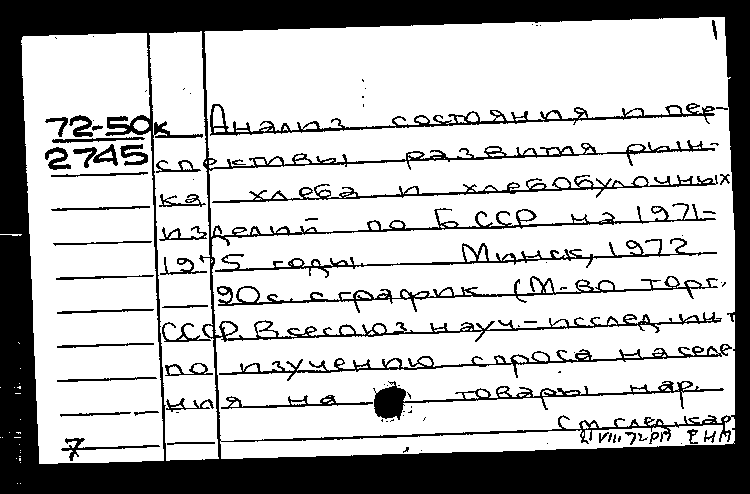 1
72-50к Анализ состояния и пер-
2745 спективы развития рын-
ка хлеба и хлебобулочных
изделий по БССР на 1971-
1975 годы. Минск, 1972.
90с. с график (М-во торг.
СССР. Всесоюз. науч.-исслед. ин-т
по изучению спроса населе
ния на товары нар.
См. след. кар
7 VIII 72